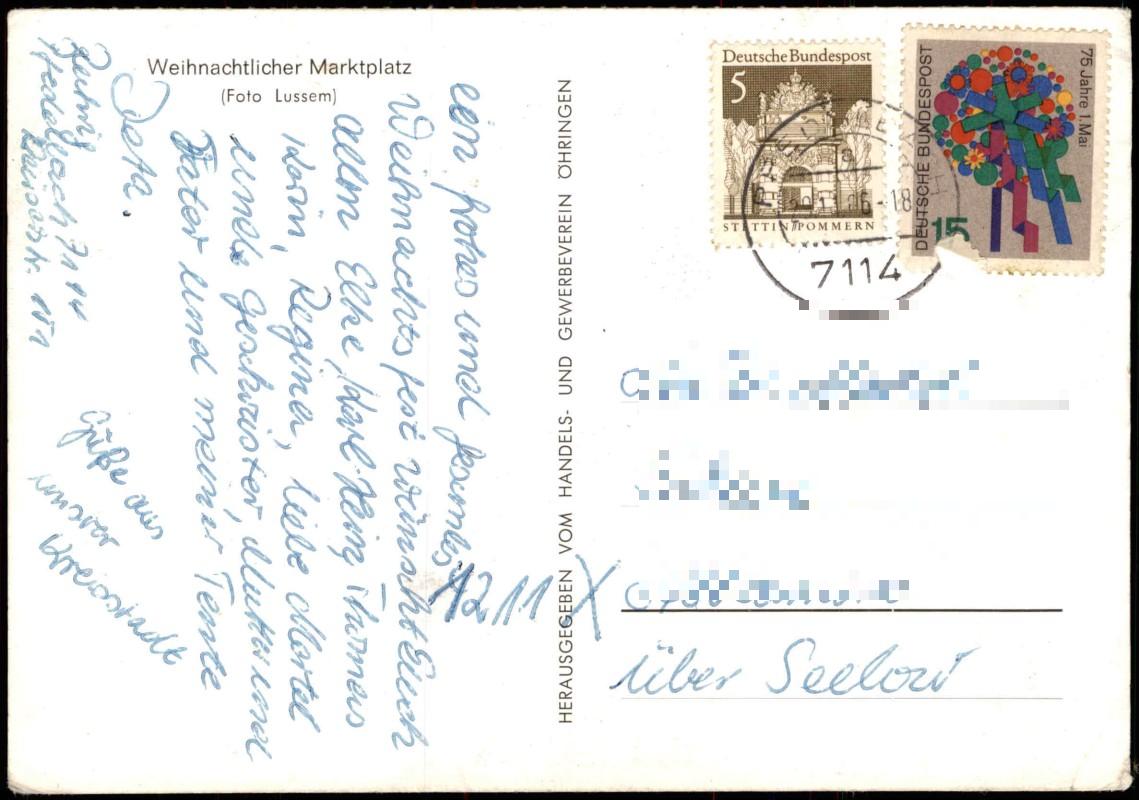 Weihnachtlicher Marktplatz
(Foto Lussem)
ein frohes und gesundes
Weihnachtsfest wünscht Euch
allen Elke, Karl-Heinz Thomas
Karin, Regina, liebe
unsre Geschwister, Mutter und
Vater und meiner Tante
7114
Grüße aus
unsrer
Kreisstadt
HERAUSGEGEBEN VOM HANDELS- UND GEWERBEVEREIN ÖHRINGEN
Deutsche Bundespost
5
STETTIN/POMMERN
DEUTSCHE BUNDESPOST
75 Jahre 1. Mai
15
-18
7114
1211 X
über Seelow